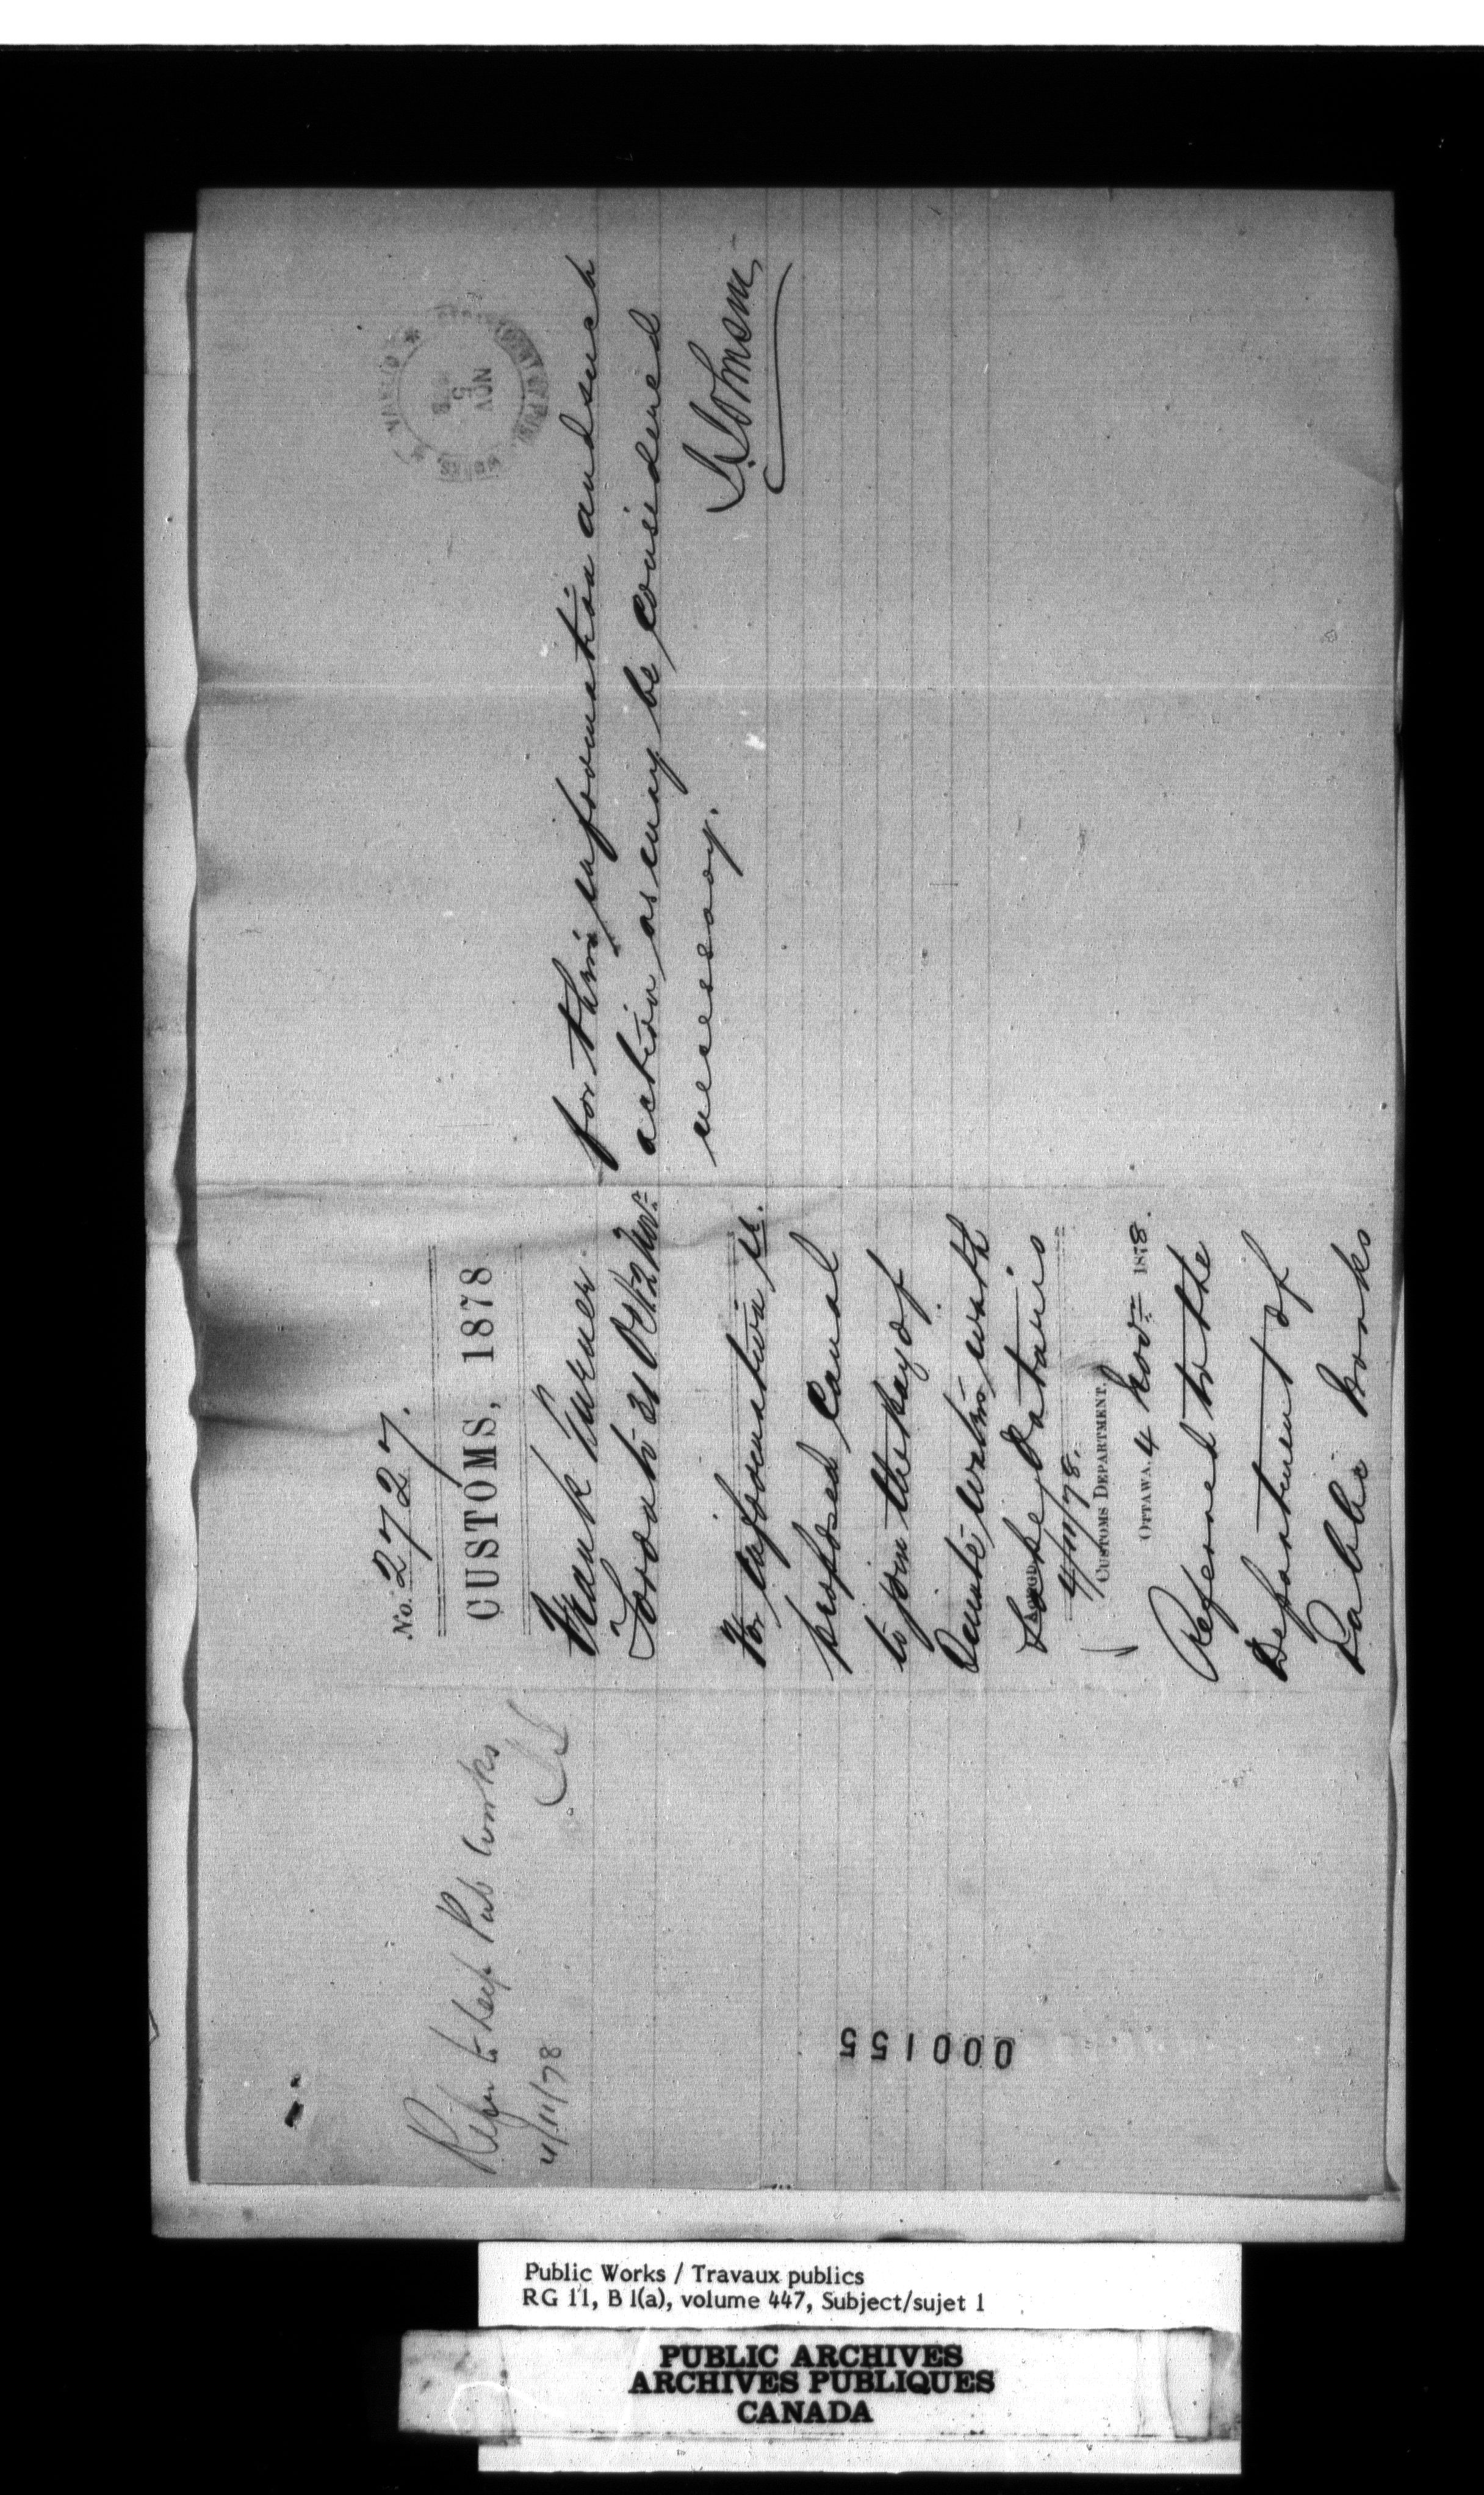 Refer to Dep Pub Works
4/11/78
No. 2727.
CUSTOMS, 1878
Frank Turner
Toronto 31 Oct & 2 Nov.
For information re.
proposed Canal
to join the Bay of
Quinte waters with
Lake Ontario
4/11/78.
CUSTOMS DEPARTMENT,
OTTAWA, 4 Nov. 1878.
Referred to the
Department of
Public Works
for their information and such
action as may be considered
necessary.
J. Johnson
NOV
5
000155
Public Works / Travaux publics
RG 11, B 1(a), volume 447, Subject/sujet 1
PUBLIC ARCHIVES
ARCHIVES PUBLIQUES
CANADA